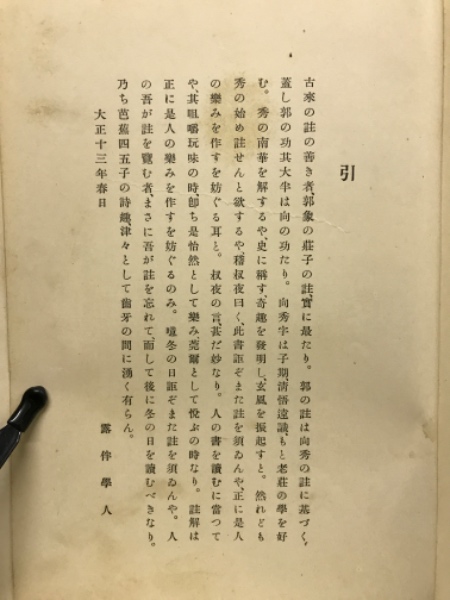 引
古來の註の善き者、郭象の莊子の註、實に最たり。郭の註は向秀の註に基づく、
蓋し郭の功其大半は向の功たり。向秀字は子期、清悟遠識、もと老莊の學を好
む。秀の南華を解するや、史に稱す、奇趣を發明し、玄風を振起すと。然れども
秀の始め註せんと欲するや、嵇叔夜曰く、此書詎ぞまた註を須ゐんや、正に是人
の樂みを作すを妨ぐる耳と。叔夜の言、甚だ妙なり。人の書を讀むに當つて
や、其咀嚼玩味の時、卽ち是怡然として樂み、莞爾として悅ぶの時なり。註解は
正に是人の樂みを作すを妨ぐるのみ。噫冬の日詎ぞまた註を須ゐんや。人
の吾が註を覽む者、まさに吾が註を忘れて、而して後に冬の日を讀むべきなり。
乃ち芭蕉四五子の詩趣、津々として齒牙の間に湧く有らん。
大正十三年春日
露伴學人